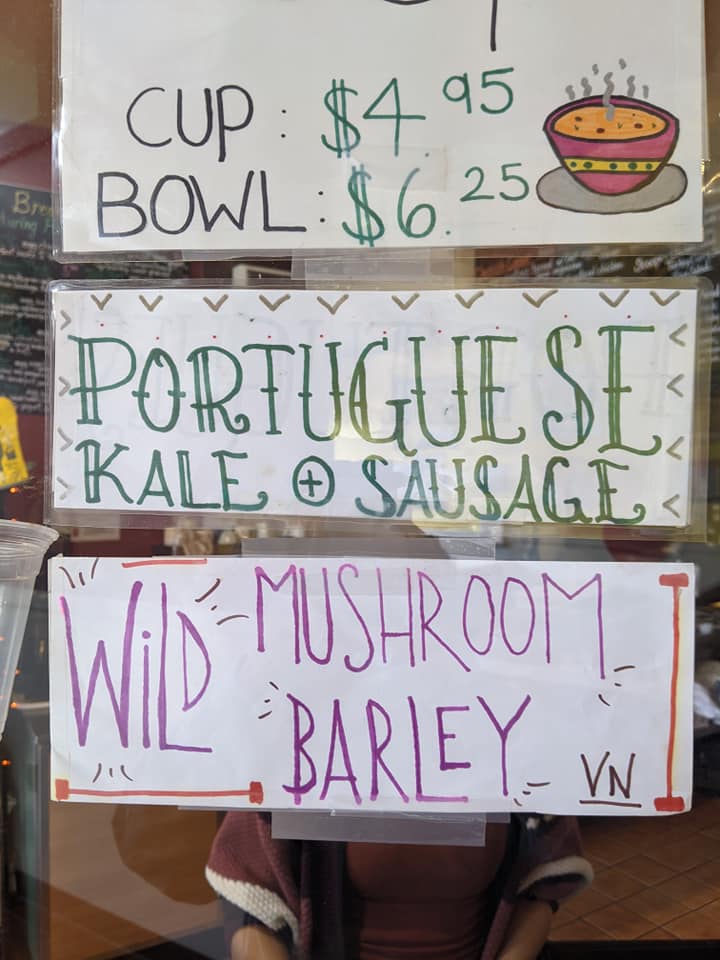 CUP: $4.95
BOWL: $6.25
PORTUGUESE
KALE + SAUSAGE
WiLD MUSHROOM
BARLEY
VN